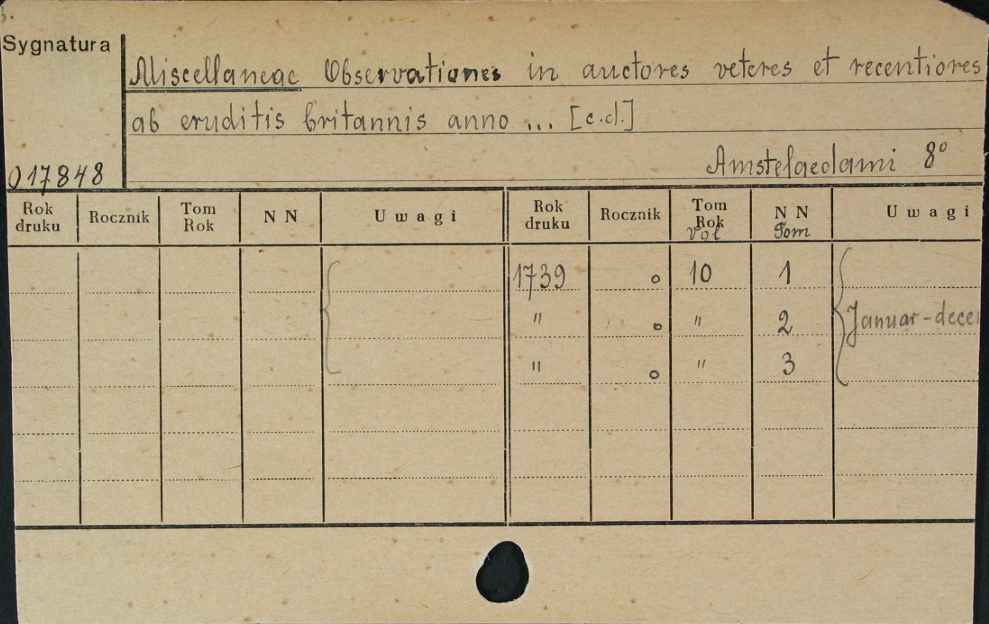 Sygnatura
Miscellaneae Observationes in auctores veteres et recentiores
ab eruditis britannis anno ... [c.d.]
Amstelaedami 8°
017848
Rok druku Rocznik Tom Rok N N Uwagi Rok druku Rocznik Tom Rok vol N N Tom Uwagi
1739 o 10 1
" o " 2 Januar-dece
" o " 3